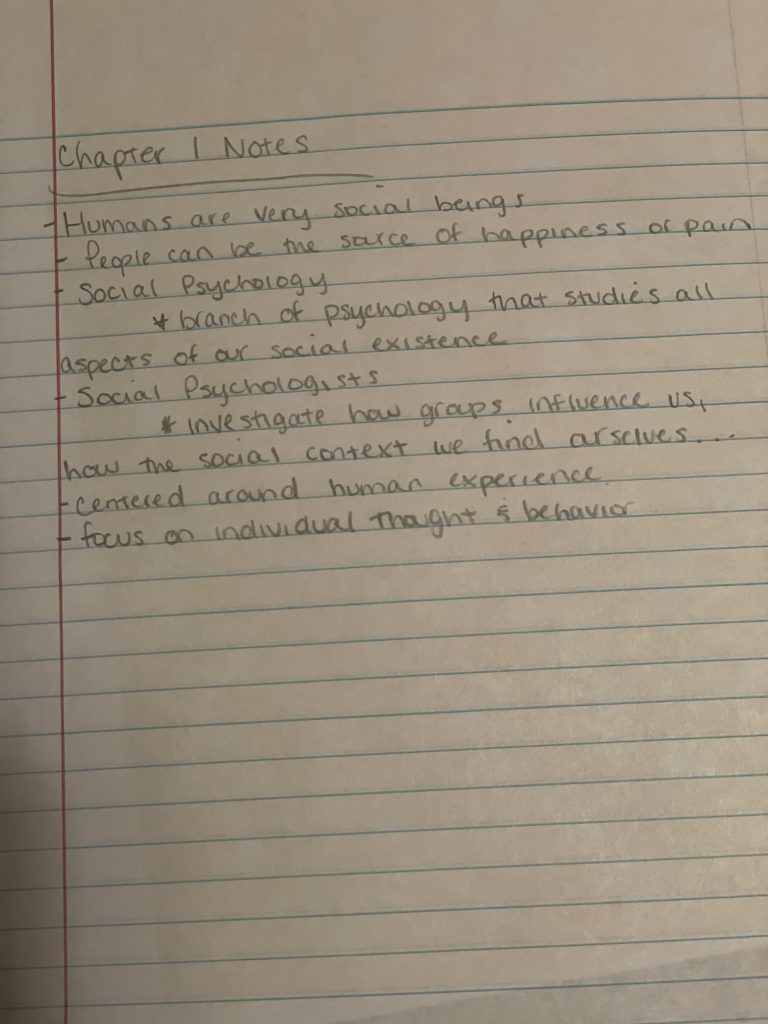 Chapter 1 Notes
- Humans are very social beings
- People can be the source of happiness or pain
- Social Psychology
* branch of psychology that studies all
aspects of our social existence
- Social Psychologists
* investigate how groups influence us,
how the social context we find ourselves...
- centered around human experience.
- focus on individual thought & behavior